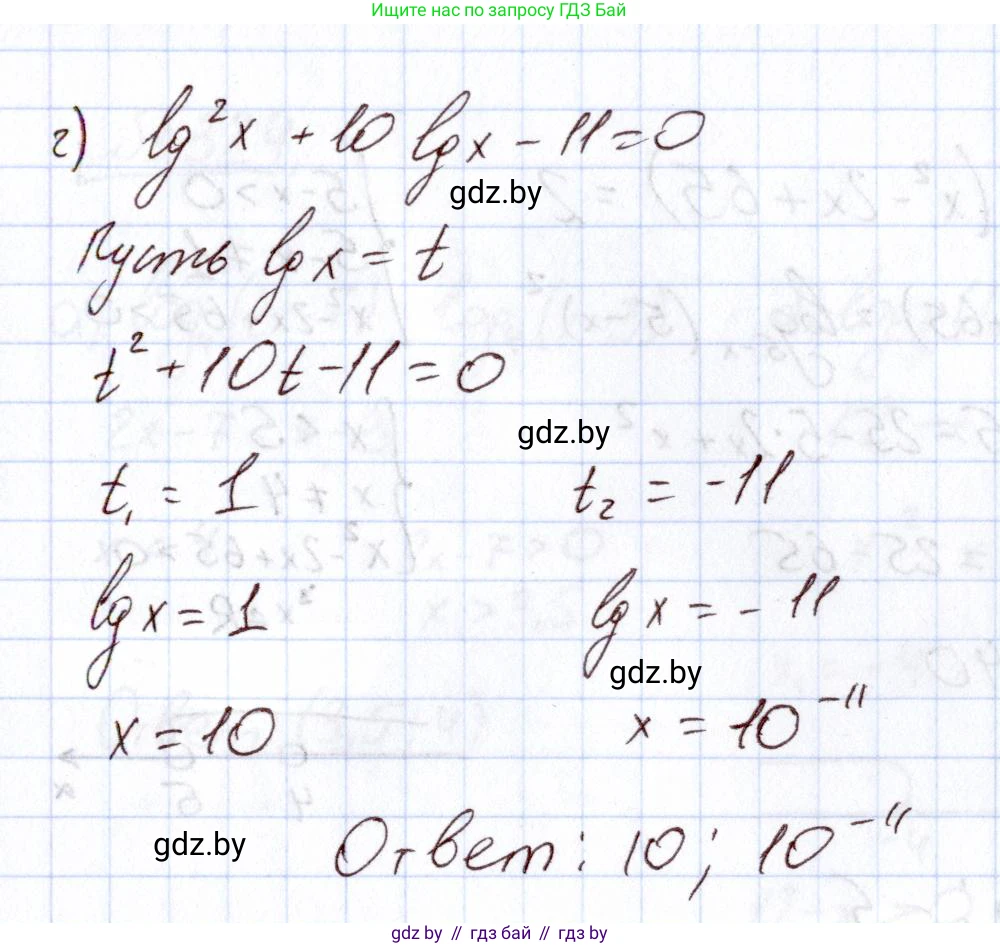 Ищите нас по запросу ГДЗ Бай
г) lg²x + 10 lgx - 11 = 0
gdz.by
Пусть lgx = t
t² + 10t - 11 = 0
gdz.by
t₁ = 1 t₂ = -11
lgx = 1 lgx = - 11
gdz.by
x = 10 x = 10⁻¹¹
gdz.by
Ответ: 10; 10⁻¹¹
gdz.by // гдз бай // гдз by